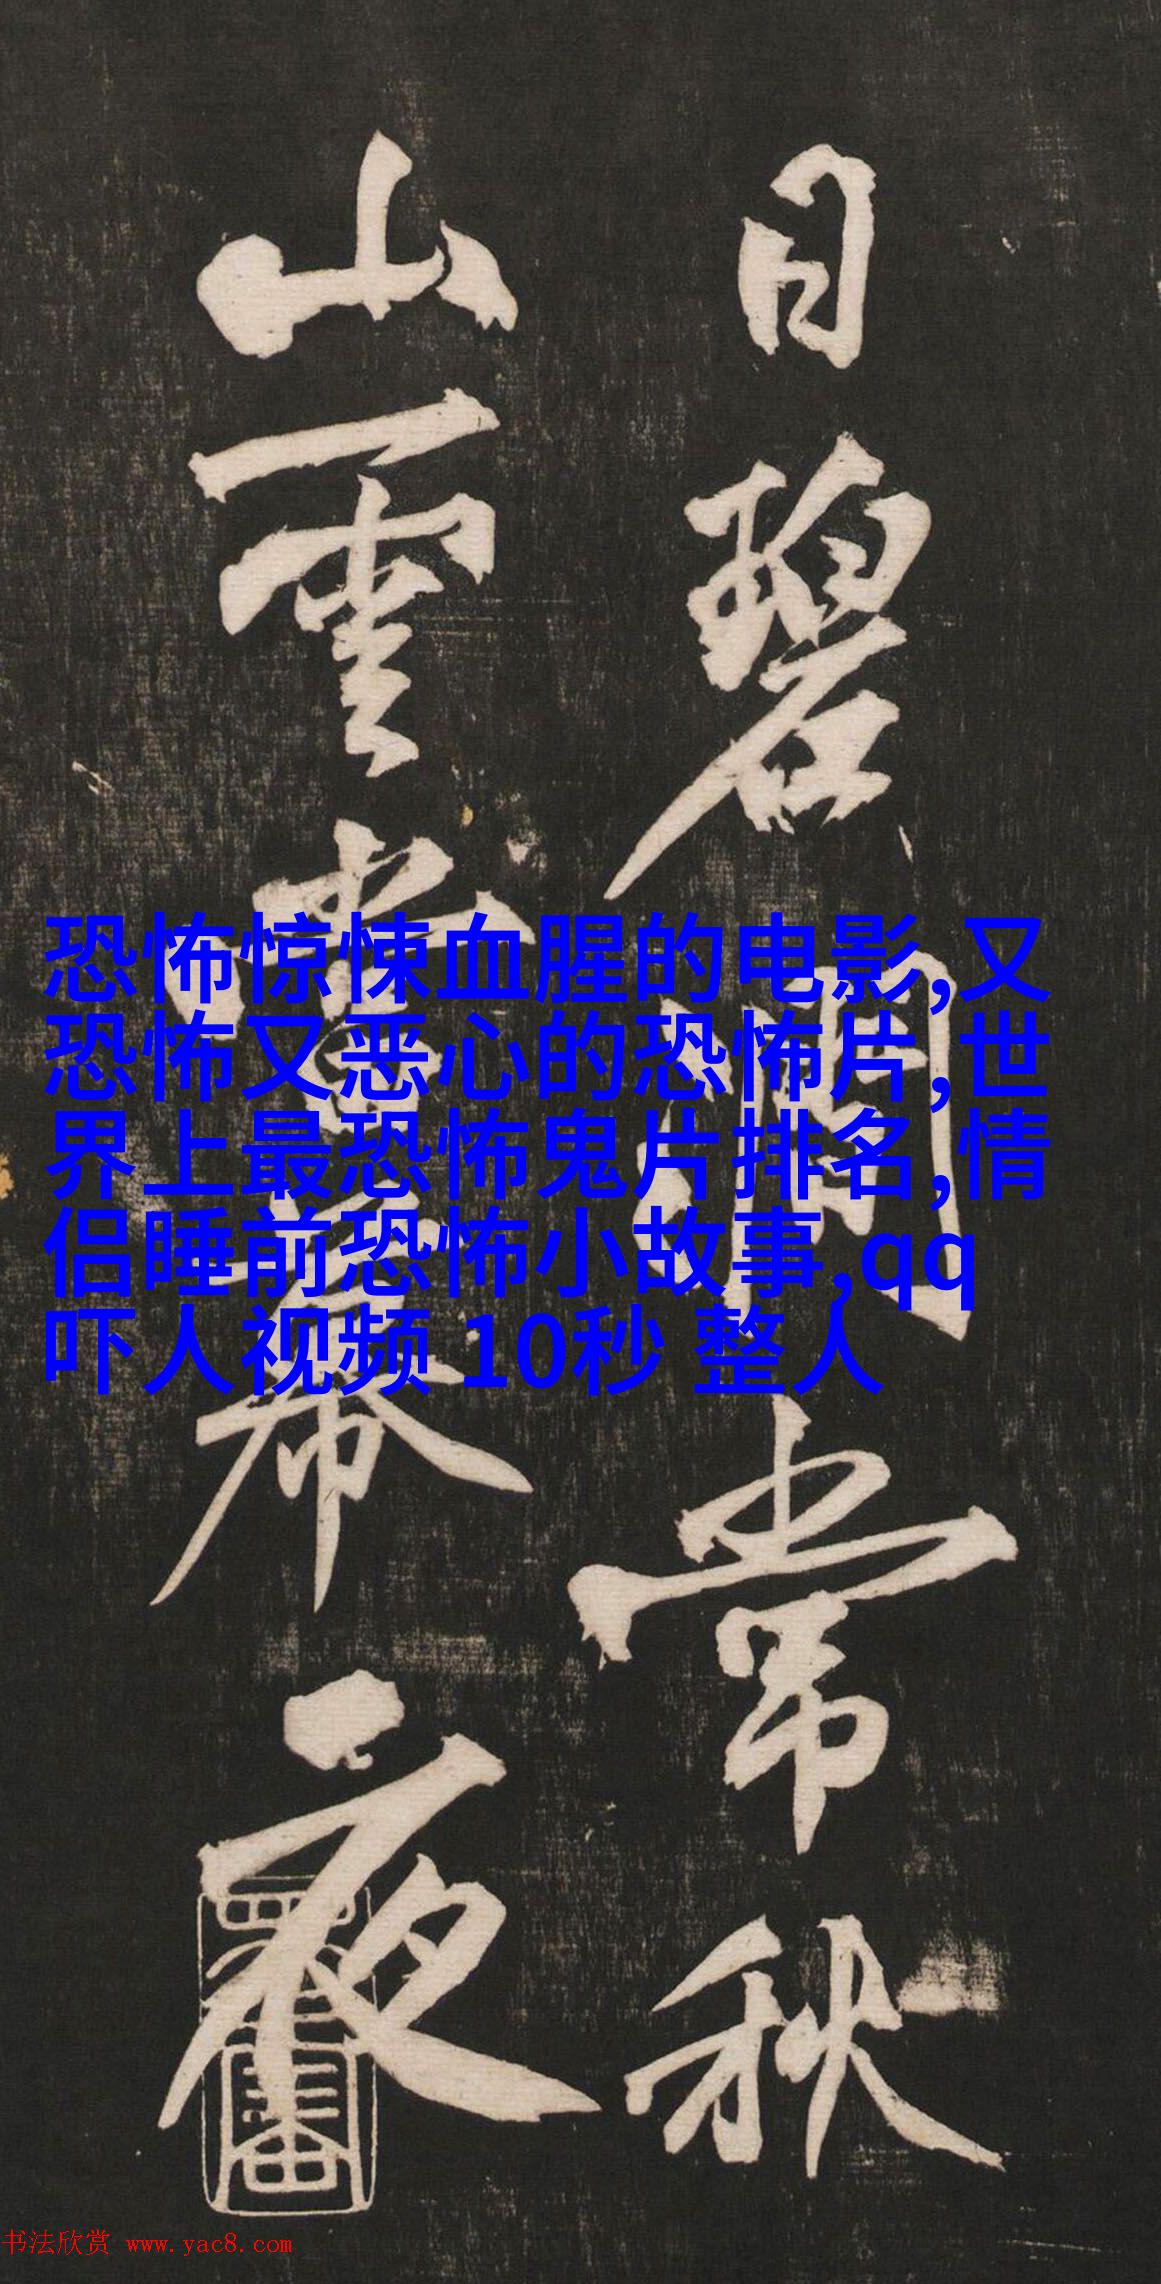 日碧澗常秋
山雲當幕夜
恐怖惊悚血腥的电影,又
恐怖又恶心的恐怖片,世
界上最恐怖鬼片排名,情
侣睡前恐怖小故事,qq
吓人视频 10秒 整人
书法欣赏 www.yac8.com